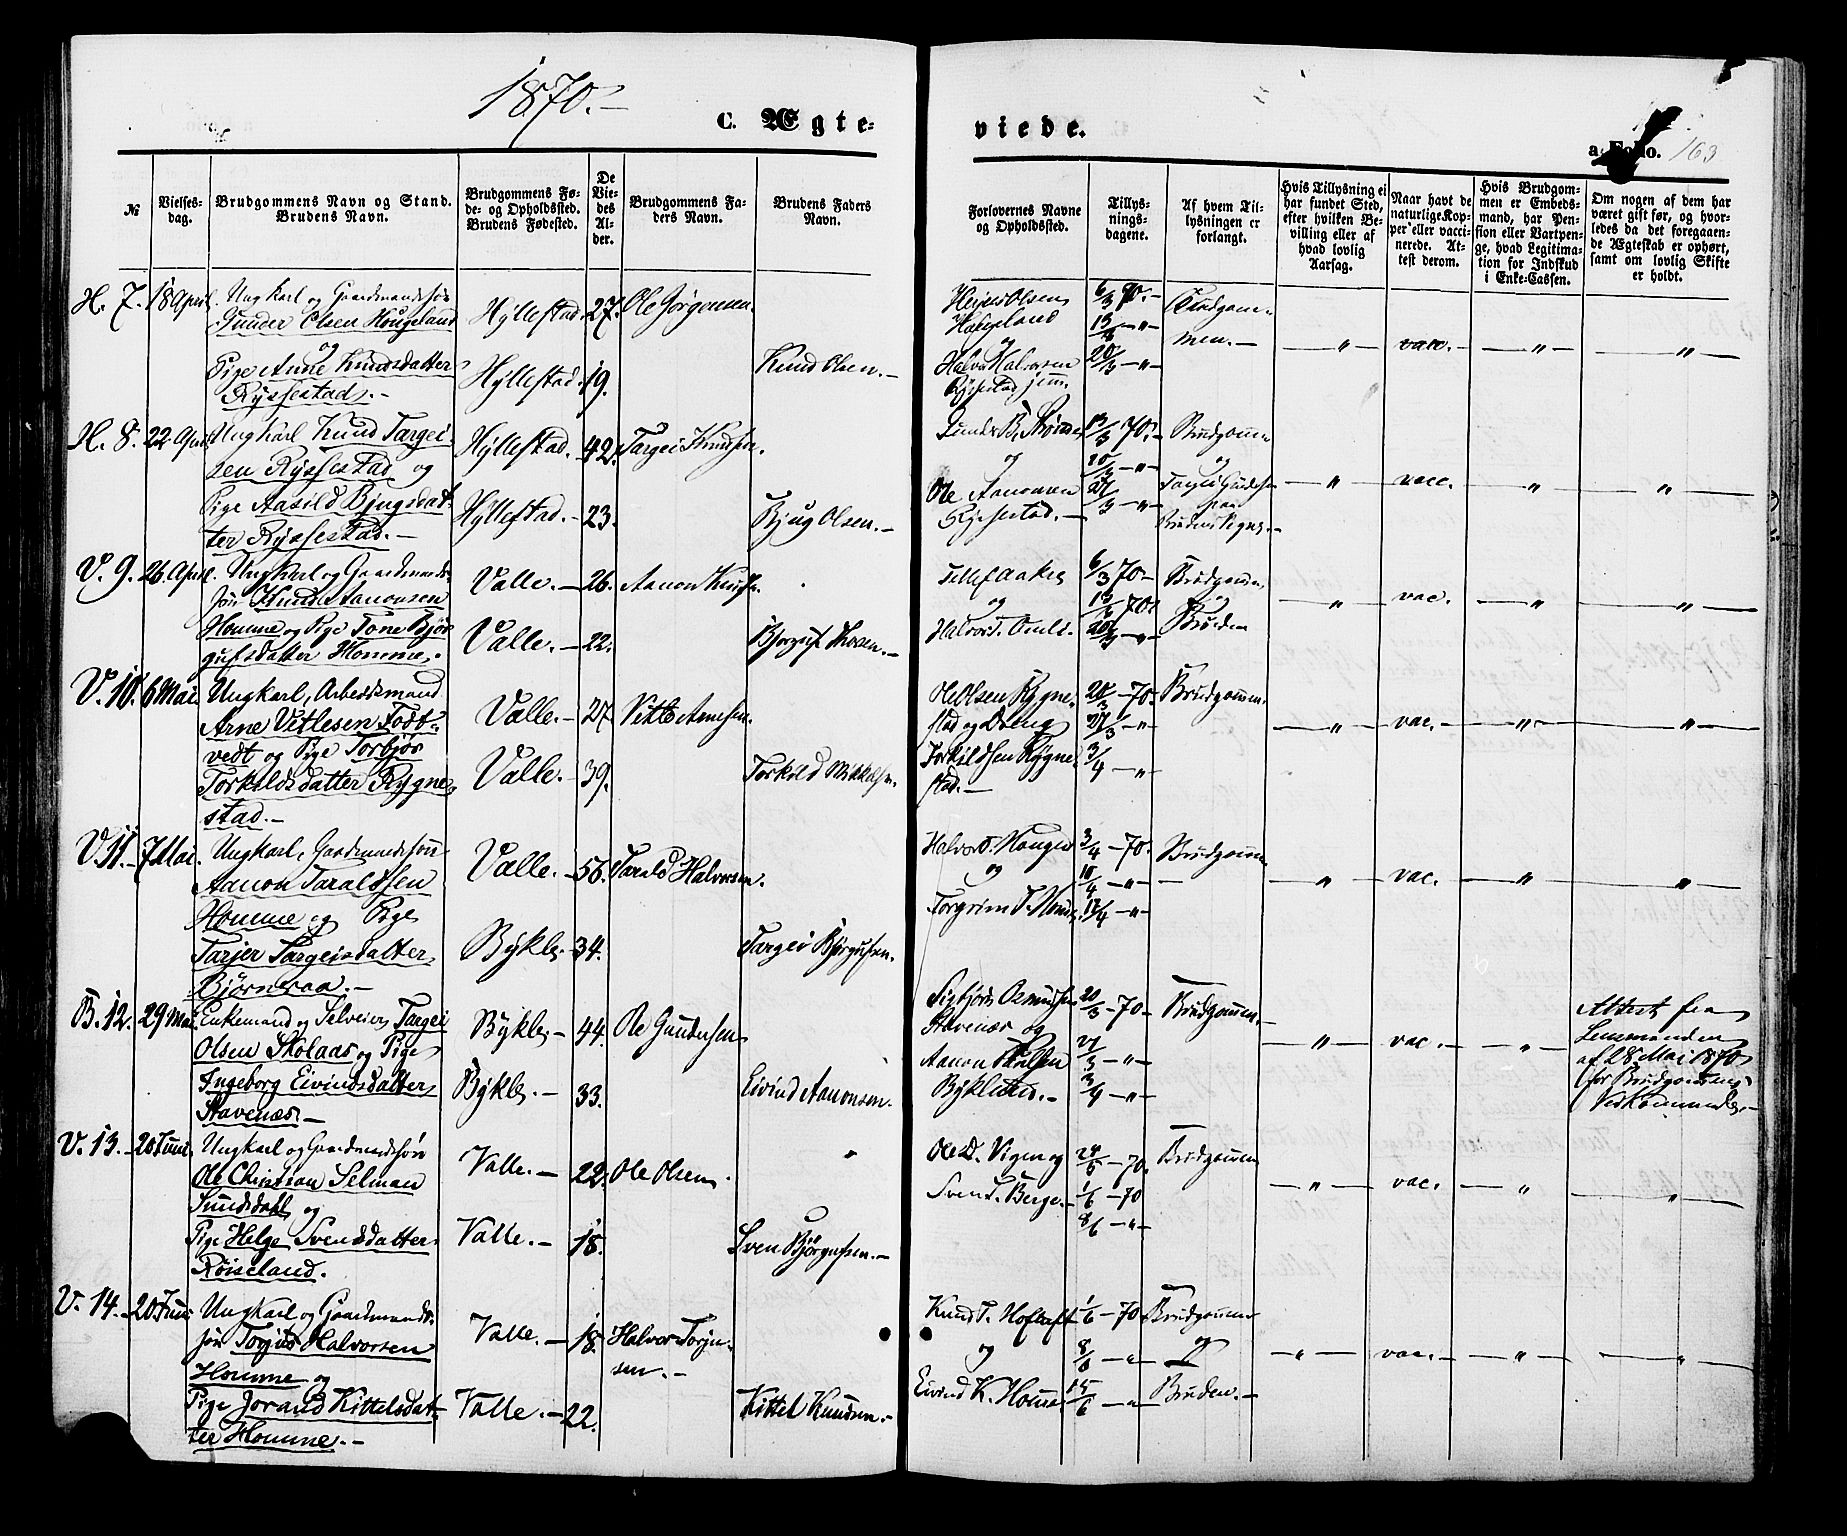 1870.-
C. Ægte-
viede.
a. Folio. 163
№
Vielses-
dag.
Brudgommens Navn og Stand.
Brudens Navn.
Brudgommens Fø-
de- og Opholdssted.
Brudens Fødested.
De
Vie-
des
Al-
der.
Brudgommens Fa-
ders Navn.
Brudens Faders
Navn.
Forlovernes Navne
og Opholdssted.
Tillys-
nings-
dagene.
Af hvem Til-
lysningen er
forlangt.
Hvis Tillysning ei
har fundet Sted,
efter hvilken Be-
villing eller af
hvad lovlig
Aarsag.
Naar havt de
naturlige Kop-
per eller vacci-
nerede. At-
test derom.
Hvis Brudgom-
men er Embeds-
mand, har Pen-
sion eller Vartpen-
ge, hvad Legitima-
tion for Indskud
i Enke-Cassen.
Om nogen af dem har
været gift før, og hvor-
ledes da det foregaaen-
de Ægteskab er ophørt,
samt om lovlig Skifte
er holdt.
H. 7. 18 April. Ungkarl og Gaardmandssøn
Gunder Olsen Hougeland
og
Pige Anne Knudsdatter
Ryssestad.-
Hyllestad. 27. Ole Jørgensen.
Hyllestad. 19. Knud Olsen.-
Olsen
Hougeland
og
Halvor Halvorsen
Ryssestad
6/3 70.-
13/3 -"-
20/3 -"-
Brudgom-
men.-
-"- vacc. -"- -"-
H. 8. 22 April Ungkarl Knud Targei-
sen Ryssestad og
Pige Aasild Bjugsdat-
ter Ryssestad.-
Hyllestad. 42. Targei Knudsen.
Hyllestad.- 23. Bjug Olsen.-
Gunder B.
og
Ole Aanonsen
Ryssestad.-
13/3 70.-
20/3 -"-
27/3 -"-
Brudgommen
og
paa
Brudens Vegne.-
-"- vacc. -"- -"-
V. 9. 26 April. Ungkarl og Gaardmands-
søn Knud Aanonsen
Homme og Pige Tone Bjør-
gufsdatter Homme.-
Valle.- 26. Aanon Knudsn.
Valle.- 22. Bjørguf Olsen.-
Tellef Aakre
og
Halvor
6/3 70.-
13/3 70.
20/3 -"-
Brudgommen
og
Bruden
-"- vac. -"- -"-
V. 10. 6 Mai. Ungkarl, Arbeidsmand
Arne Vitlesen Tødt-
vedt og Pige Torbjør
Torkildsdatter Rygne-
stad.-
Valle.- 27. Vitle Arnesen.
Valle.- 39. Torkild Mikkelsn.
Ole Olsen Rygne-
stad og Dreng
Torkildsen Rygne-
stad.-
20/3 -70.
27/3 -"-
3/4 -"-
Brudgommen.
-"- vac. -"- -"-
V. 11. 7 Mai. Ungkarl, Gaardmandssøn
Aanon Taraldsen
Homme og Pige
Tarjer Targeisdatter
Bjørneraa.-
Valle.- 56. Tarald Halvorsen.
Bykle. 34. Targei Bjørgufsen.
Halvor
og
Torgrim T.
3/4 -70.
10/4 -"-
17/4 -"-
Brudgommen
-
-"- vac. -"- -"-
B. 12. 29 Mai Enkemand og Selveier Targei
Olsen Skolaas og Pige
Ingeborg Eivindsdatter
Stavenæs.-
Bykle.- 44. Ole Gundersen
Bykle. 33. Eivind Aanonsen.
Sigbjørn Osmundsen
Stavenæs og
Aanon
Byklum.-
20/3 -70.
27/3 -"-
3/4 -"-
Brudgommen.-
-"- vac. -"- Attest fra
Lensmanden
af 28 Mai 1870
for Brudgommens
Vedkommende.-
V. 13. 20 Juni. Ungkarl og Gaardmandssøn
Ole Christian Selman
Sundsdahl og
Pige Helge Svendsdatter
Røiseland.
Valle.- 22. Ole Olsen.
Valle.- 18. Sven Bjørgufsen.-
Ole D. Vigen og
Sven T. Berge.-
24/5 -70.
1/6 -70
8/6 -"-
Brudgommen
-"- vac. -"- -"-
V. 14. 20 Juni Ungkarl og Gaardmands-
søn Torjus Halvorsen
Homme og
Pige Jorand Kittelsdat-
ter Homme.-
Valle.- 18. Halvor Torju-
sen.-
Valle.- 22. Kittel Knudsen.-
Knud T. Hoftuft
og
Eivind K. Homme
1/6 -70
8/6 -"-
15/6 -"-
Brudgommen
og
Bruden.-
-"- vac.- -"- -"-